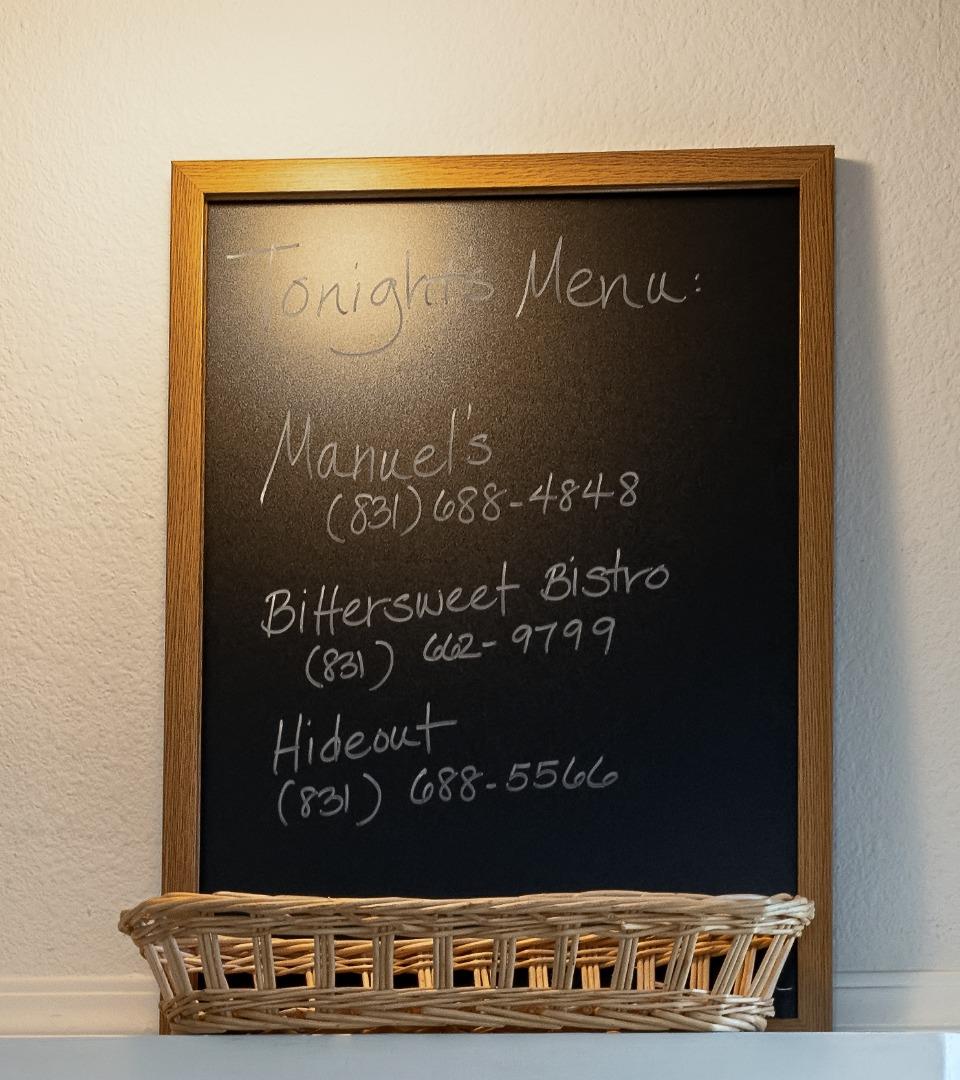 Tonight's Menu:
Manuel's
(831) 688-4848
Bittersweet Bistro
(831) 662-9799
Hideout
(831) 688-5566